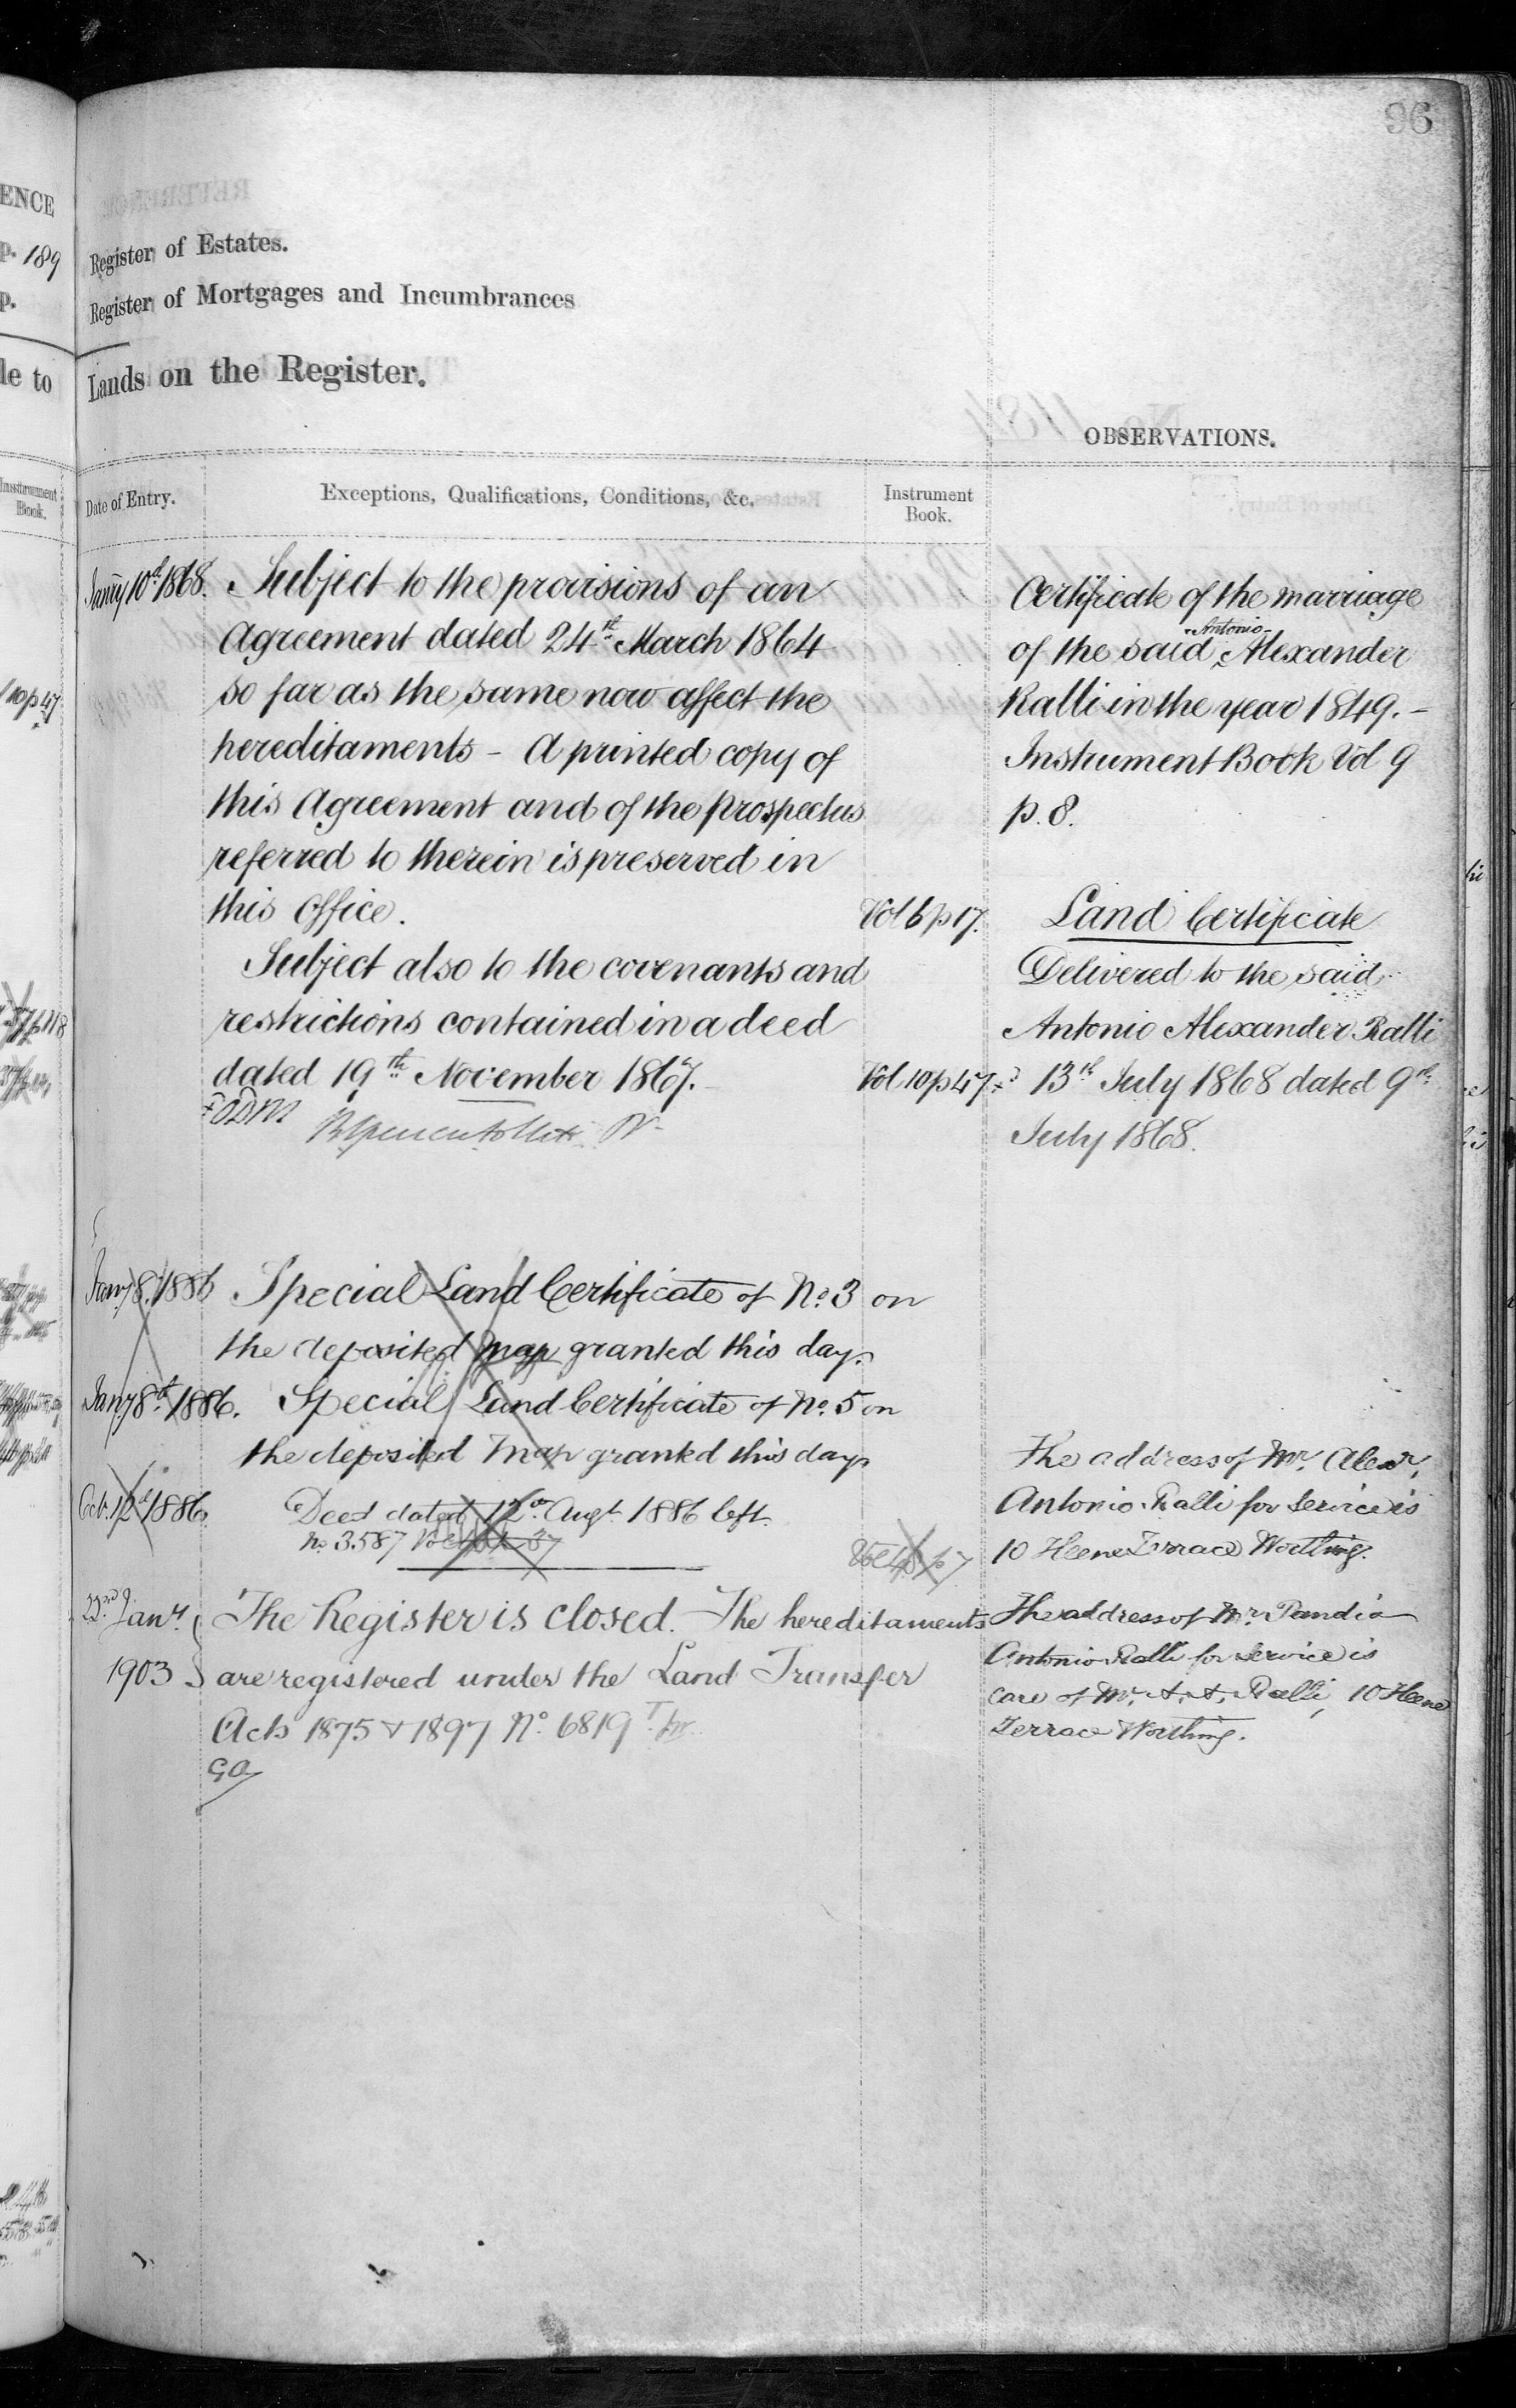 96
ENCE
p. 189
p.
le to
Instrument
Book.
10 p 47
Register of Estates.
Register of Mortgages and Incumbrances
Lands on the Register.
OBSERVATIONS.
Date of Entry.
Exceptions, Qualifications, Conditions, &c.
Instrument
Book.
Janry 10th 1868. Subject to the provisions of an
Agreement dated 24th March 1864
so far as the same now affect the
hereditaments – A printed copy of
this Agreement and of the prospectus
referred to therein is preserved in
this Office. Vol 6 p 17.
Subject also to the covenants and
restrictions contained in a deed
dated 19th November 1867. Vol 10 p 47.
Certificate of the marriage
of the said Antonio Alexander
Ralli in the year 1849. –
Instrument Book Vol 9
p. 8.
Land Certificate
Delivered to the said
Antonio Alexander Ralli
13th July 1868 dated 9th
July 1868.
Jany 8th 1886 Special Land Certificate of No. 3 on
the deposited map granted this day.
Jany 8th 1886. Special Land Certificate of No. 5 on
the deposited map granted this day
Oct. 12th 1886. Deed dated 12th Augt. 1886 left.
No 3587
The address of Mr. Alexr.
Antonio Ralli for service is
10 Heene Terrace Worthing.
22nd Jany. The Register is closed. The hereditaments
1903 are registered under the Land Transfer
Acts 1875 & 1897 No. 6819
The address of Mr. Pandia
Antonio Ralli for service is
care of Mr. A. A. Ralli, 10 Heene
Terrace Worthing.